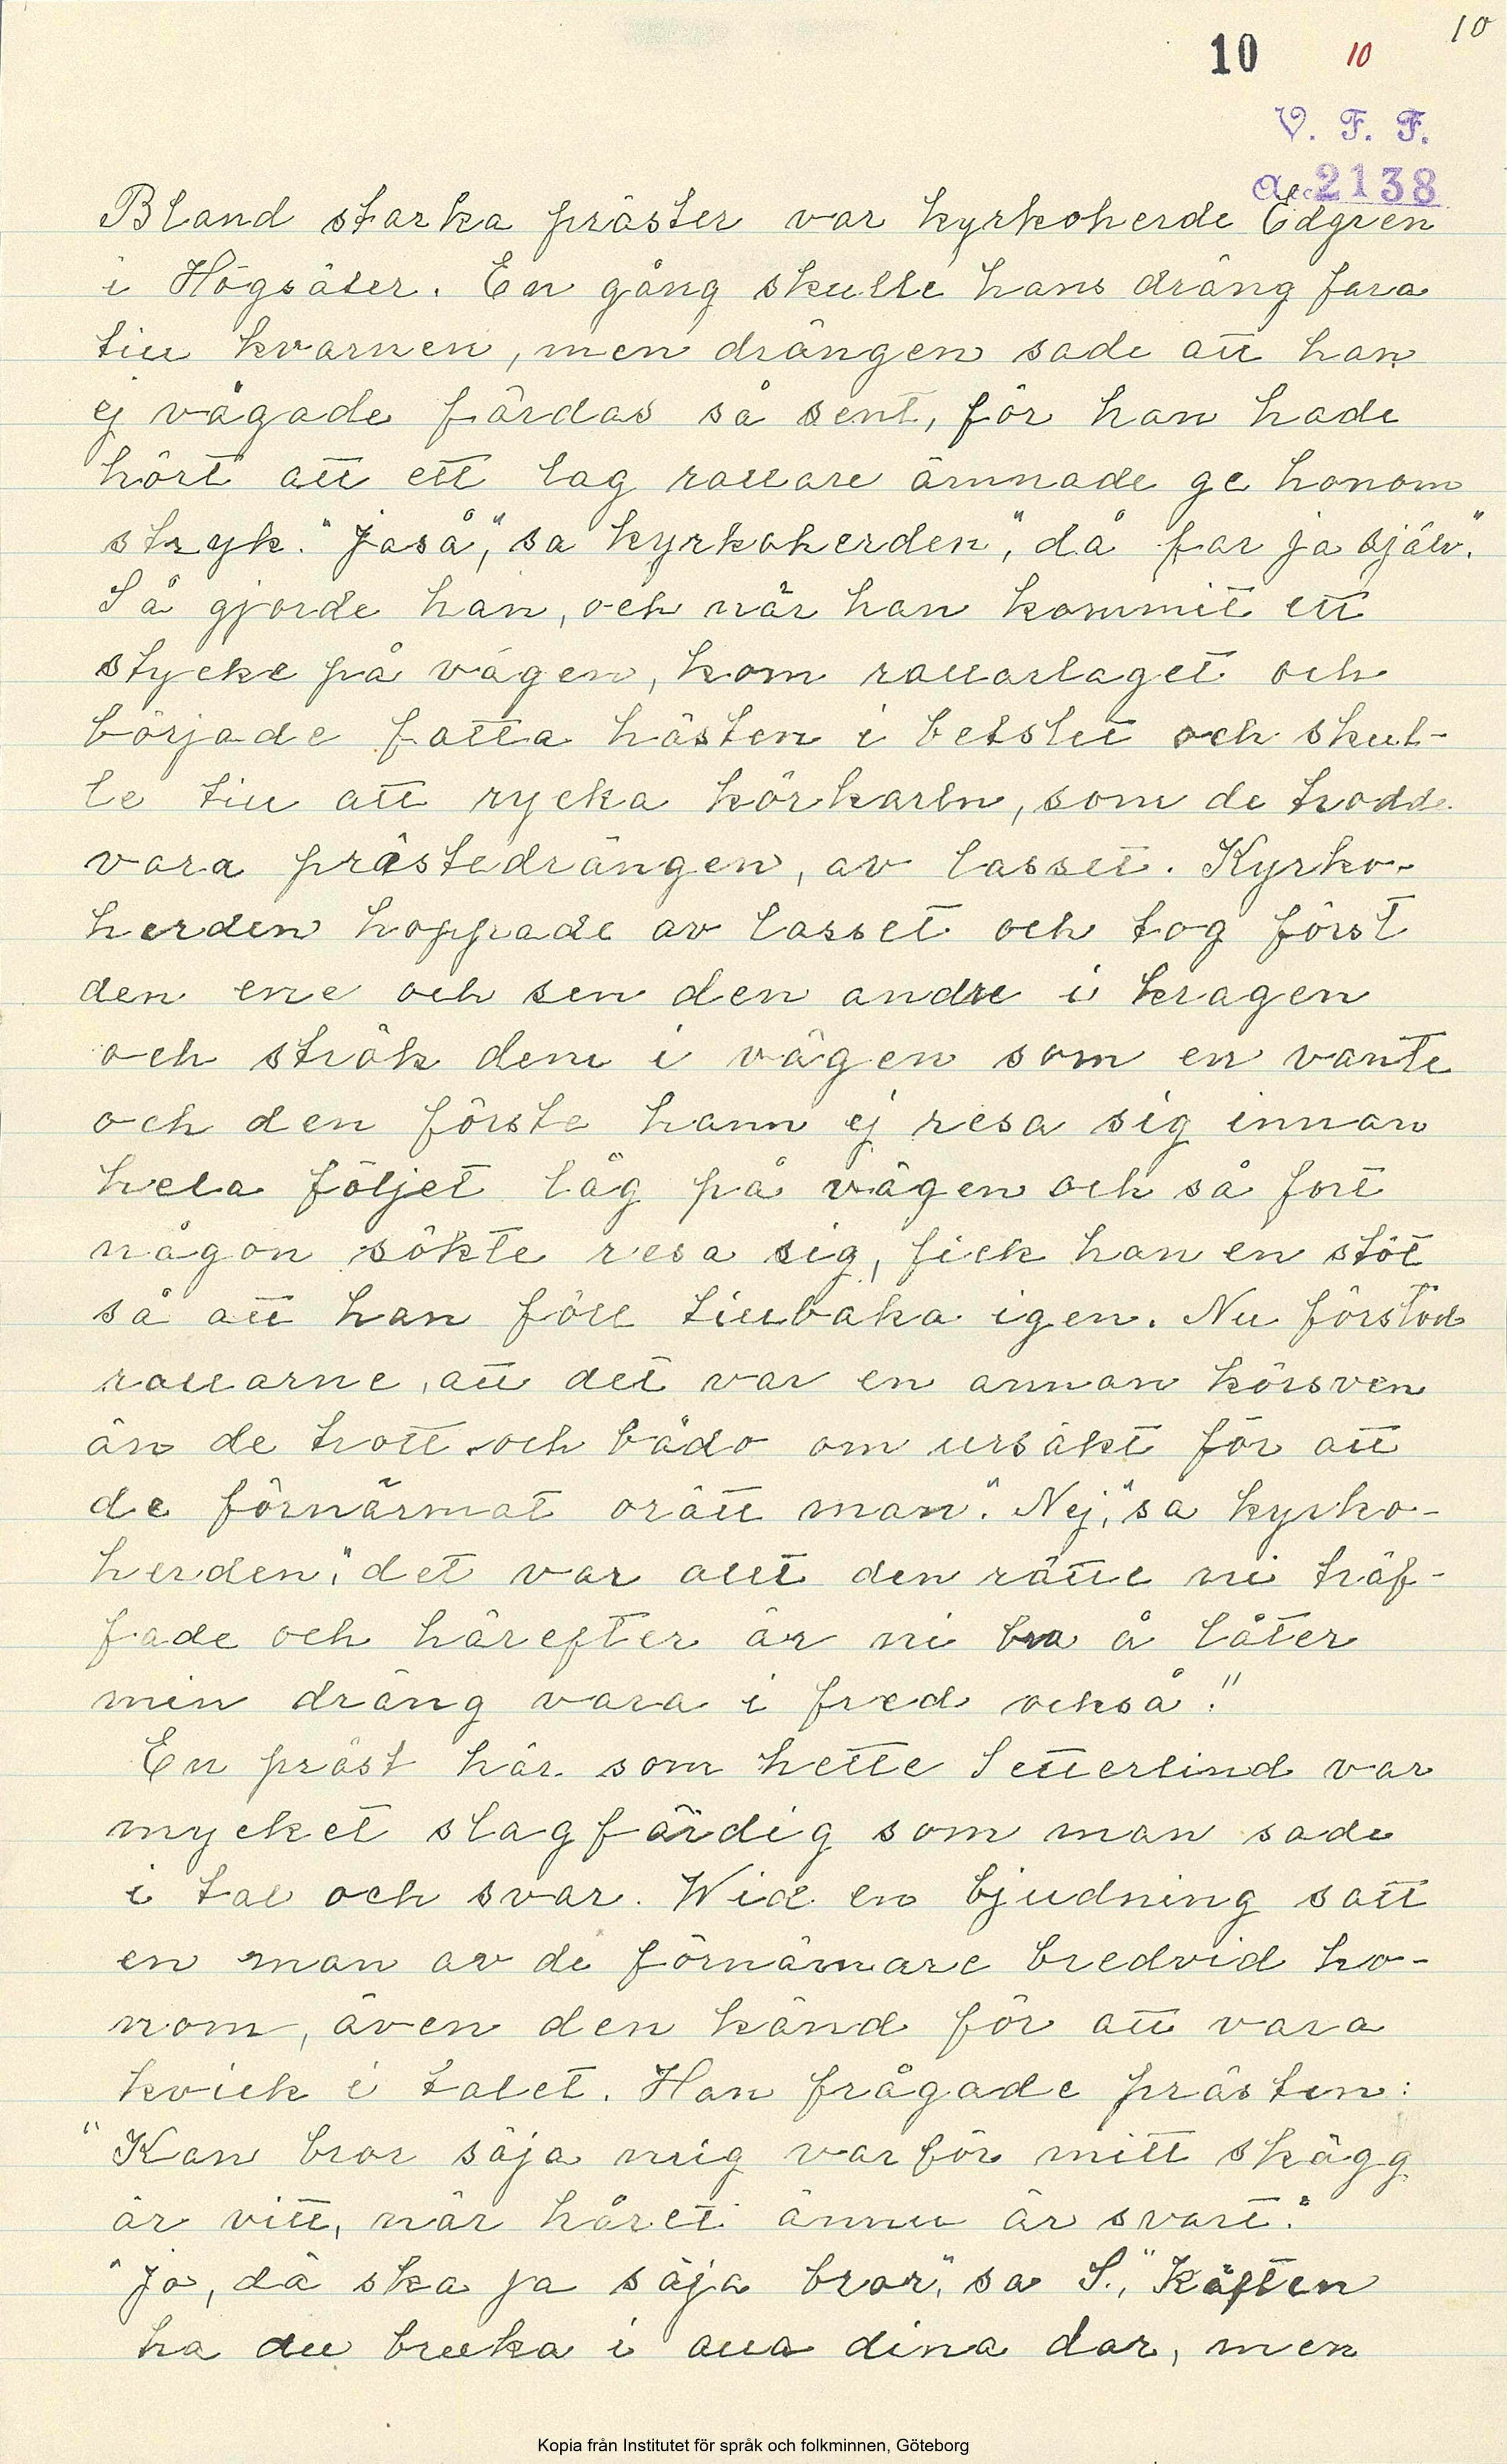 10
10
10
V. F. F.
Acc. 2138
Bland starka präster var kyrkoherde Edgren
i Högsäter. En gång skulle hans dräng fara
till kvarnen, men drängen sade att han
ej vågade färdas så sent, för han hade
hört att ett lag rallare ämnade ge honom
stryk. "Jaså", sa kyrkoherden", då far ja själv."
Så gjorde han, och när han kommit ett
stycke på vägen, kom rallarlaget och
började fatta hästen i betslet och skul-
le till att rycka körkarln, som de trodde
vara prästedrängen, av lasset. Kyrko-
herden hoppade av lasset och tog först
den ene och sen den andre i kragen
och strök dem i vägen som en vante
och den förste hann ej resa sig innan
hela följet låg på vägen och så fort
någon sökte resa sig, fick han en stöt
så att han föll tillbaka igen. Nu förstod
rallarne, att det var en annan körsven
än de trott och bådo om ursäkt för att
de förnärmat orätt man. "Nej," sa kyrko-
herden, "det var allt den rätte ni träf-
fade och härefter är ni bra å låter
min dräng vara i fred också."
En präst här som hette Setterlind var
mycket slagfärdig som man sade
i tal och svar. Wid en bjudning satt
en man av de förnämare bredvid ho-
nom, även den känd för att vara
kvick i talet. Han frågade prästen:
"Kan bror säja mig varför mitt skägg
är vitt, när håret ännu är svart."
"Jo, då ska ja säja bror," sa S., "Käften
ha du bruka i alla dina dar, men
Kopia från Institutet för språk och folkminnen, Göteborg